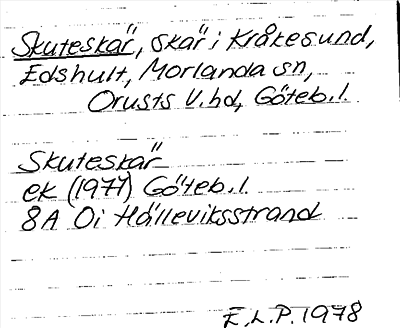 Skuteskär, skär i Kråkesund,
Edshult, Morlanda sn,
Orusts V. hd, Göteb. l.
Skuteskär
ek (1977) Göteb. l.
8A Oi Hälleviksstrand
E.L.P. 1978